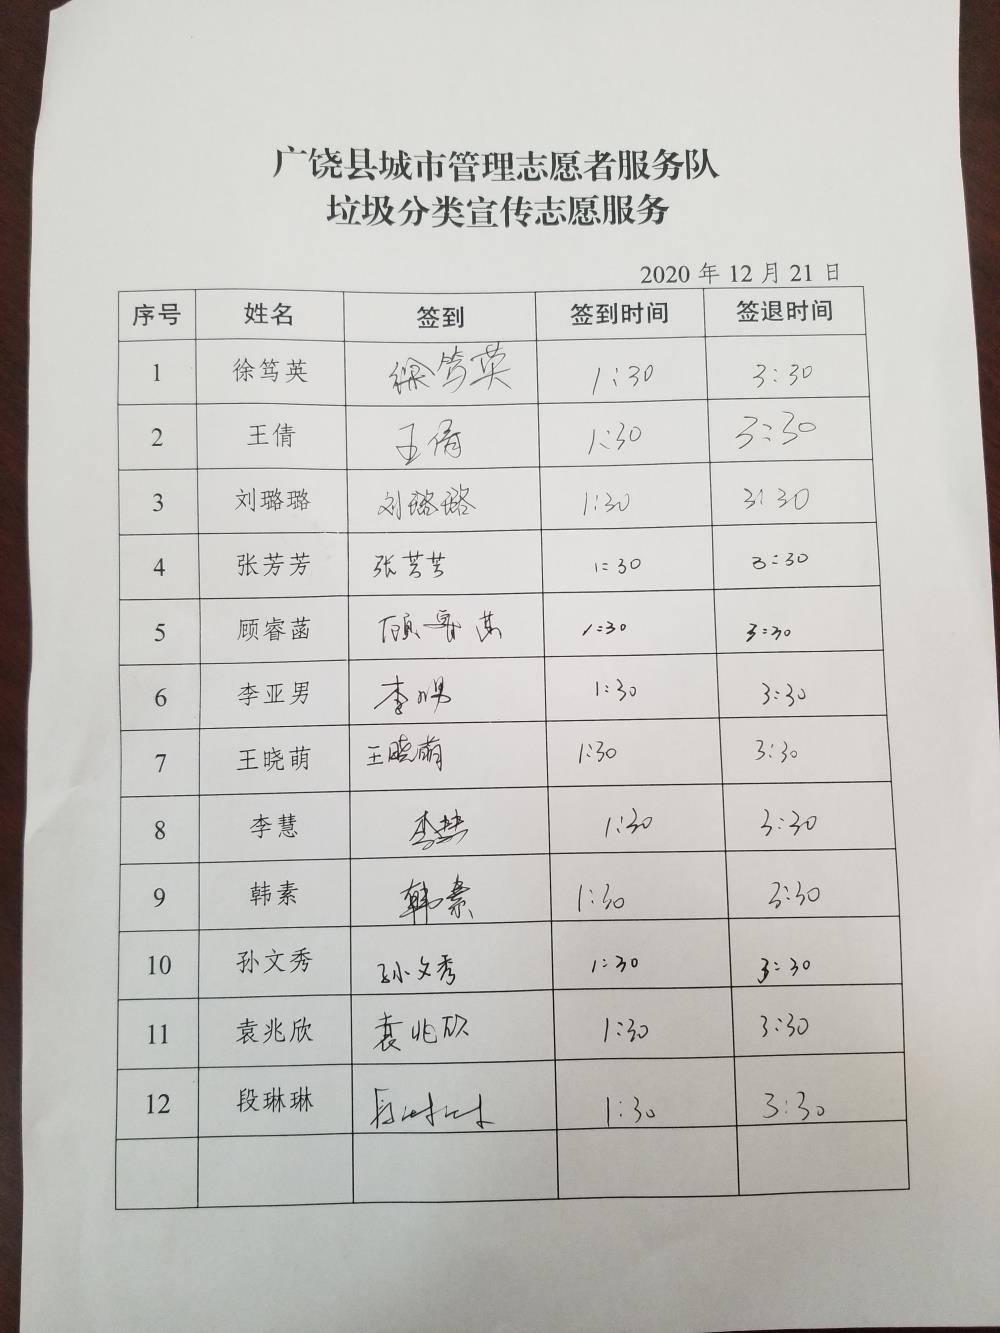 广饶县城市管理志愿者服务队
垃圾分类宣传志愿服务
2020 年 12 月 21 日
序号 姓名 签到 签到时间 签退时间
1 徐笃英 徐笃英 1:30 3:30
2 王倩 王倩 1:30 3:30
3 刘璐璐 刘璐璐 1:30 3:30
4 张芳芳 张芳芳 1:30 3:30
5 顾睿菡 顾睿菡 1:30 3:30
6 李亚男 李亚男 1:30 3:30
7 王晓萌 王晓萌 1:30 3:30
8 李慧 李慧 1:30 3:30
9 韩素 韩素 1:30 3:30
10 孙文秀 孙文秀 1:30 3:30
11 袁兆欣 袁兆欣 1:30 3:30
12 段琳琳 段琳琳 1:30 3:30